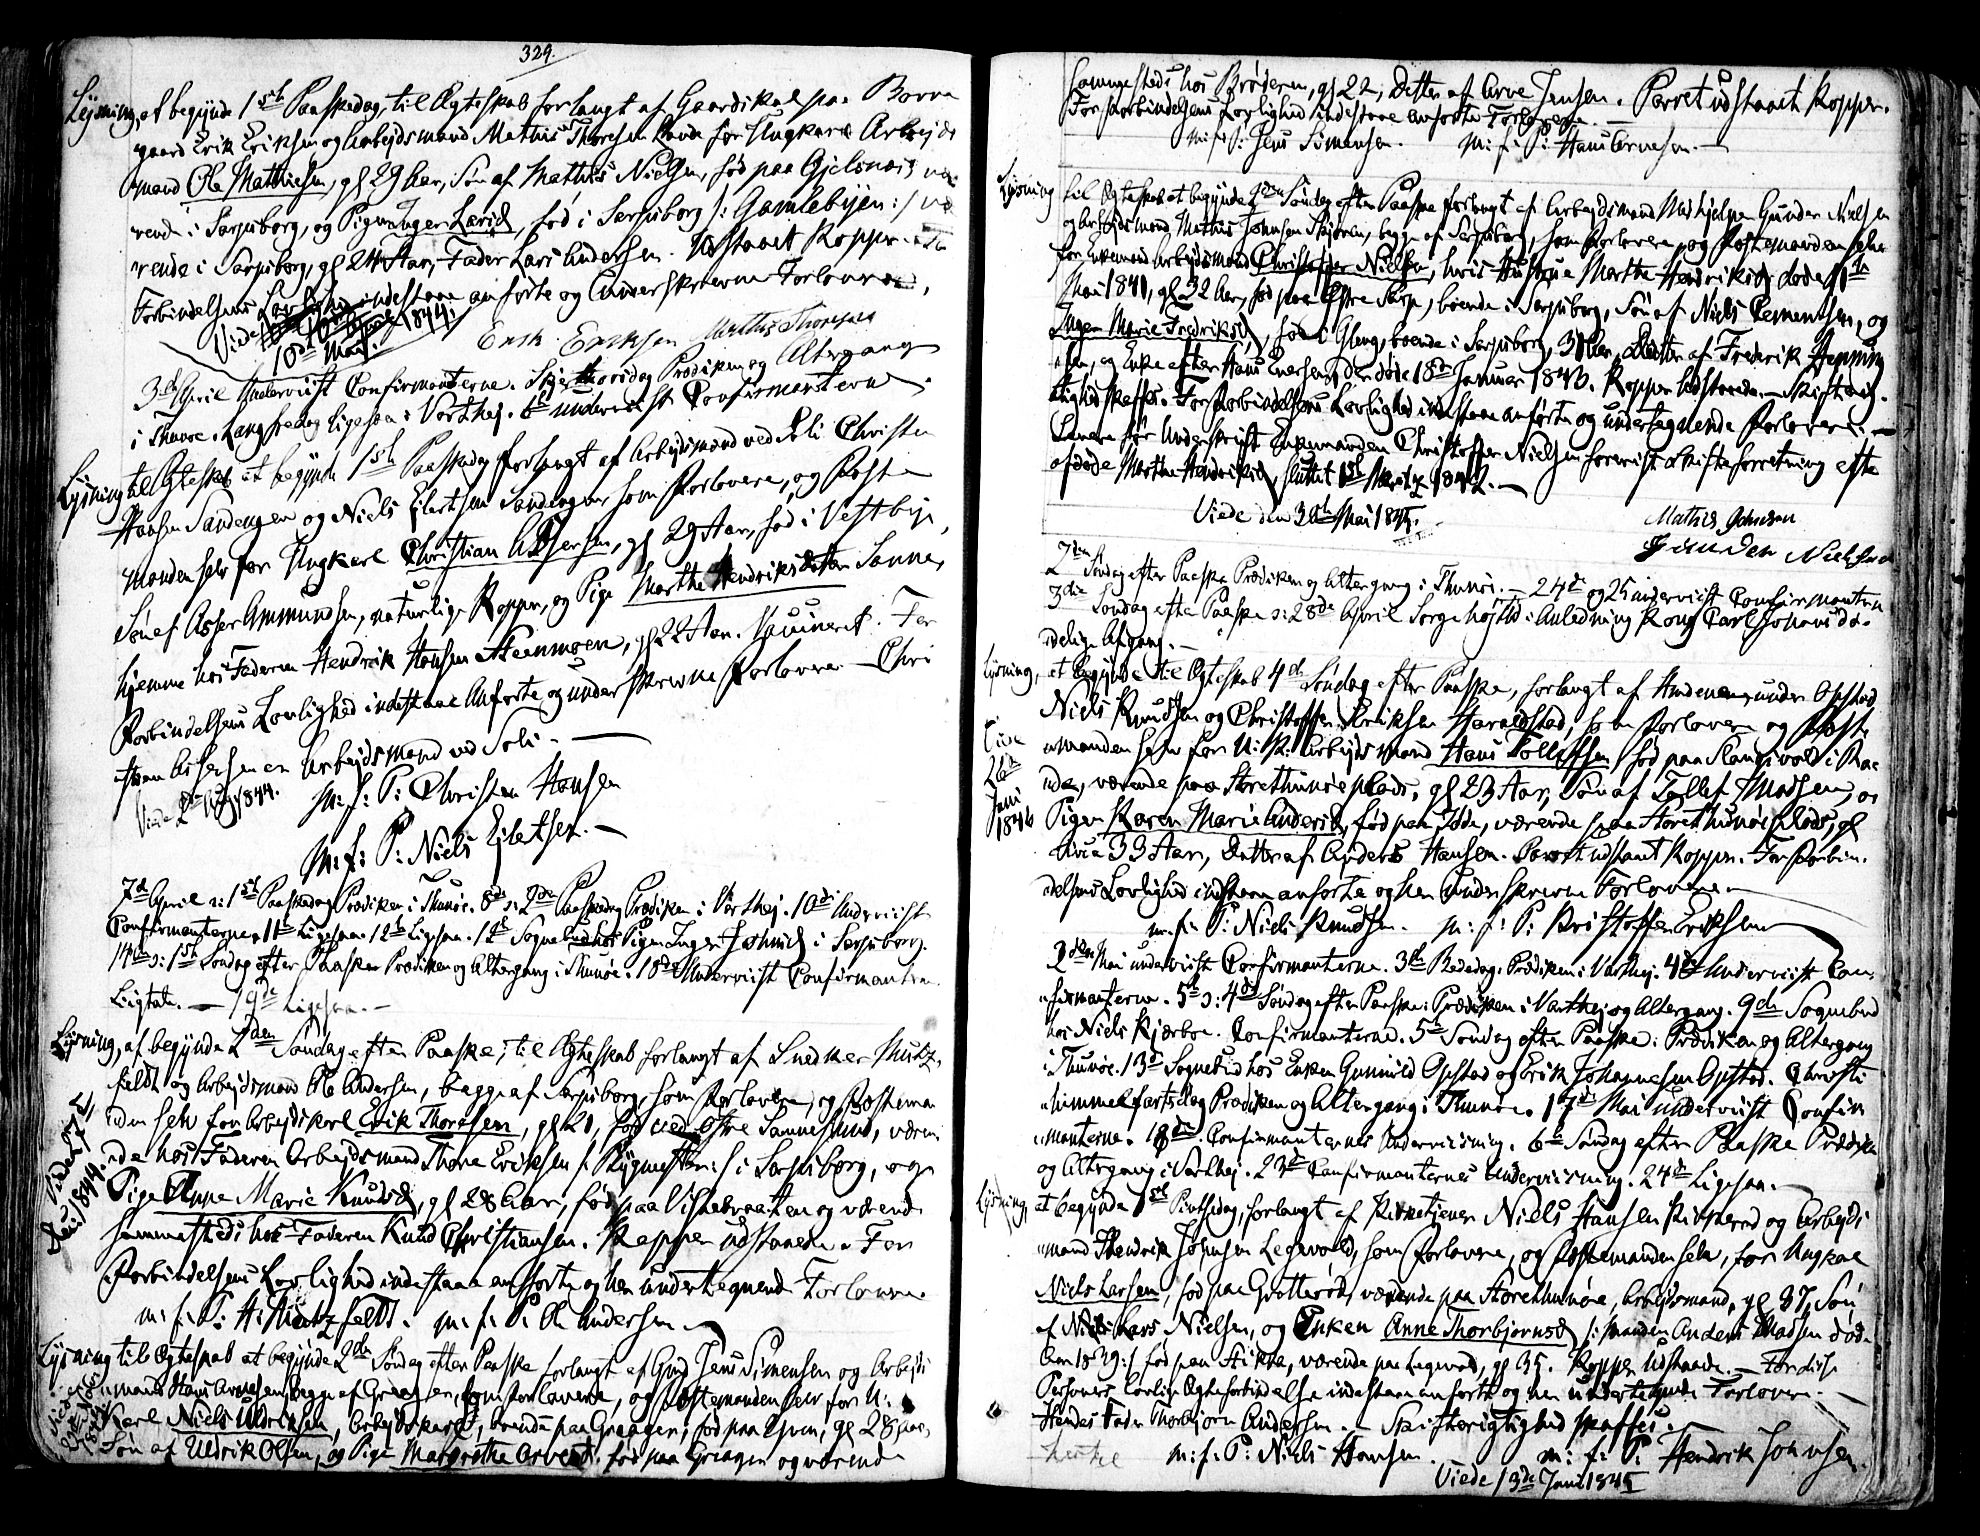 329.
Lysning, at begynde 1ste Paaskedag, til Ægteskab forlangt af Gaardskarl paa Borre
gaard Erik Eriksen og Arbejdsmand Mathis Thoresen Lande for Ungkarl Arbejds
mand Ole Mathiesen, gl 29 Aar, Søn af Mathis Nielsen, fød paa Gjelsnæs væ
rende i Sarpsborg, og Pigen Inger Larsd, fød i Sarpsborg /: Gamlebyen :/ væ
rende i Sarpsborg, gl 24 Aar, Fader Lars Andersen. Udstaaet Kopper. For
Forbindelsens Lovlighed indestaae anførte og underskrevne Forlovere,
Viede 10de Maj 1844.
Erik Eriksen Mathis Thoresen
3de April Underviist Confirmanterne. Skjærthorsdag Prædiken og Altergang
i Thunøe. Langfredag ligesaa i Varthej. 6te underviist Confirmanterne.
Lysning til Ægteskab at begynde 1ste Paaskedag forlangt af Arbejdsmand ved Soli Christen
Hansen Sandengen og Niels Eilertsen Sandengen som Forlovere, og Feste
manden selv for Ungkarl Christian Assersen, gl 29 Aar, fød i Vestbye,
Søn af Asser Ammundsen, naturlige Kopper, og Pige Marthe Hendriksdatter Sanne,
hjemme hos Faderen Hendrik Hansen Steenmoen, gl 22 Aar. Vaccineret. For
Forbindelsens Lovlighed indestaae anførte og underskrevne Forlovere — Chri
stian Assersen er Arbejdsmand ved Soli. —
Viede 2den Aug 1844. m: f: P: Christen Hansen
m: f: P: Niels Eilertsen. —
7de April o: 1ste Paaskedag Prædiken i Thunøe. 8de o: 2den Paaskedag Prædiken i Varthej. 10de Underviist
Confirmanterne. 11te Ligesaa. 12te Ligesaa. 12te Sognebud hos Pigen Inger i Sarpsborg.
14de o: 1ste Søndag efter Paaske Prædiken og Altergang i Thunøe. 18de Underviist Confirmanterne.
Ligtale. — 19de Ligesaa. —
Lysning, at begynde 2den Søndag efter Paaske, til Ægteskab forlangt af Snedker Mutz-
feldt og Arbejdsmand Ole Andersen, begge af Sarpsborg, som Forlovere, og Festeman
den selv for Arbejdskarl Erik Thoresen, gl 21, fød ved Østre Sannesund, væren
de hos Faderen Arbejdsmand Thore Eriksen /: Rygmester :/ i Sarpsborg, og
Pige Anne Marie Knudsd, gl 28 Aar, fød paa Visterbraaten og værende
sammesteds hos Faderen Knud Christiansen. Kopper udstaaede. For
Forbindelsens Lovlighed indestaae anførte og her undertegnede Forlovere
Viede 27de Juni 1844.
m: f: P: H: Mutzfeldt. m: f: P: Ole Andersen —
Lysning til Ægteskab at begynde 2den Søndag efter Paaske forlangt af Grd Jens Simensen og Arbejds
mand Hans Arnesen, begge af Graager, som Forlovere, og Festemanden selv for U:
Karl Niels Uldriksen, Arbejdskarl, boende paa Graager, fød paa, gl 28 Aar,
Søn af Uldrik Olsen, og Pige Margrethe Arvesd: fød paa Graager og værende
sammesteds hos Broderen, gl 22, Datter af Arve Jensen. Parret udstaaet Kopper.
For Forbindelsens Lovlighed indestaae anførte Forlovere. —
m: f: P: Jens Simensen. m: f: P: Hans Arnesen. —
Lysning til Ægteskab at begynde 2den Søndag efter Paaske forlangt af Arbejdsmand Gunder Nielsen
og Arbejdsmand Mathis Johnsen, begge af Sarpsborg, som Forlovere, og Festemanden selv
for Enkemand Arbejdsmand Christoffer Nielsen, hvis Hustrue Marthe Hendriksd døde 1ste
Mai 1841, gl 32 Aar, fød paa Østre Sarp, boende i Sarpsborg, Søn af Niels Clementsen, og
Inger Marie Fredriksd, fød i Gleng, boende i Sarpsborg, 31 Aar, Datter af Fredrik Henning
sen, og Enke efter Hans Evensen, der døde 18de Januar 1843. Kopper udstaaede. — Skifterig-
tighed skaffes. For Forbindelsens Lovlighed indestaae anførte og undertegnede Forlovere. —
før Underskrift Enkemanden Christoffer Nielsen foreviist Skifteforretning efter
afdøde Marthe Hendriksd, sluttet 15de Martz 1842. —
Viede den 30te Mai 1845.
Mathis Johnsen
Gunder Nielsen
2den Søndag efter Paaske Prædiken og Altergang i Thunøe. — 24de og 25 underviist Confirmanterne
3die Søndag efter Paaske o: 28de April Sørgehøjtid i Anledning Kong Carl Johans dø-
delige Afgang. —
Lysning, at begynde til Ægteskab 4de Søndag efter Paaske, forlangt af under Opstad
Niels Knudsen og Christoffer Eriksen Haraldstad, som Forlovere og Feste
manden selv for U: K: Arbejdsmand Hans Tollefsen, fød paa Slangsvold i Raa
de, værende paa Storethunøe plads, gl 23 Aar, Søn af Tollef Madsen, og
Pigen Karen Marie Andersd, fød paa, værende paa Storethunøe plads, gl
circa 33 Aar, Datter af Anders Hansen. Parret udstaaet Kopper. For Forbin-
delsens Lovlighed indestaae anførte og her underskrevne Forlovere. —
Viede
26de
Juni
1846
m: f: P: Niels Knudsen. m: f: P: Kristoffer Eriksen
2den Mai underviist Confirmanterne. 3die Bededag: Prædiken i Varthej. 4de Underviist Con-
firmanterne. 5te o: 4de Søndag efter Paaske: Prædiken i Varthej og Altergang. 9de Sognebud
hos Niels Kjærboe. Confirmanterne. 5te Søndag efter Paaske: Prædiken og Altergang
i Thunøe. 13de Sognebud hos Enken Gunnild Opstad og Erik Johannesen Opstad. Christi
himmelfartsdag Prædiken og Altergang i Thunøe. 17de Mai underviist Confir
manterne. 18de Confirmanternes Underviisning. 6te Søndag efter Paaske Prædiken
og Altergang i Varthej. 23de Confirmanternes Underviisning. 24de Ligesaa. —
Lysning, at begynde 1ste Pintsedag, forlangt af Kirketjener Niels Hansen Kirkerød og Arbejds
mand Hendrik Johnsen Legevold, som Forlovere, og Festemanden selv, for Ungkarl
Niels Larsen, fød paa Grotterød, værende paa Storethunøe, Arbejdsmand, gl 37, Søn
af Lars Nielsen, og Enken Anne Thorbjørnsd /: Manden Anders Madsen døde
Aar 1839 :/ fød paa Stikka, værende paa Legevold, gl 35. Kopper Udstaaede. — For disse
Personers lovlige Ægteforbindelse indestaae anførte og her undertegnede Forlovere. —
Hendes Fader Thorbjørn Andersen. — Skifterigtighed skaffes.
m: f: P: Niels Hansen. m: f: P: Hendrik Johnsen.
Viede 13de Juni 1845